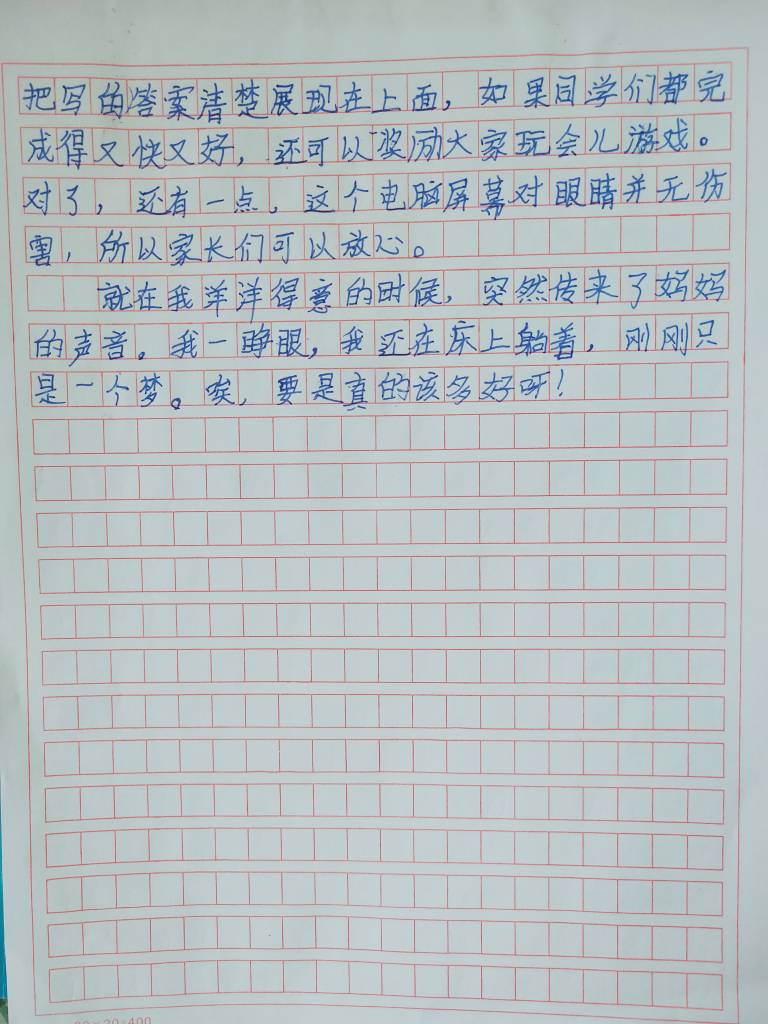 把写的答案清楚展现在上面，如果同学们都完
成得又快又好，还可以奖励大家玩会儿游戏。
对了，还有一点，这个电脑屏幕对眼睛并无伤
害，所以家长们可以放心。
就在我洋洋得意的时候，突然传来了妈妈
的声音。我一睁眼，我还在床上躺着，刚刚只
是一个梦。唉，要是真的该多好呀！
20×20=400